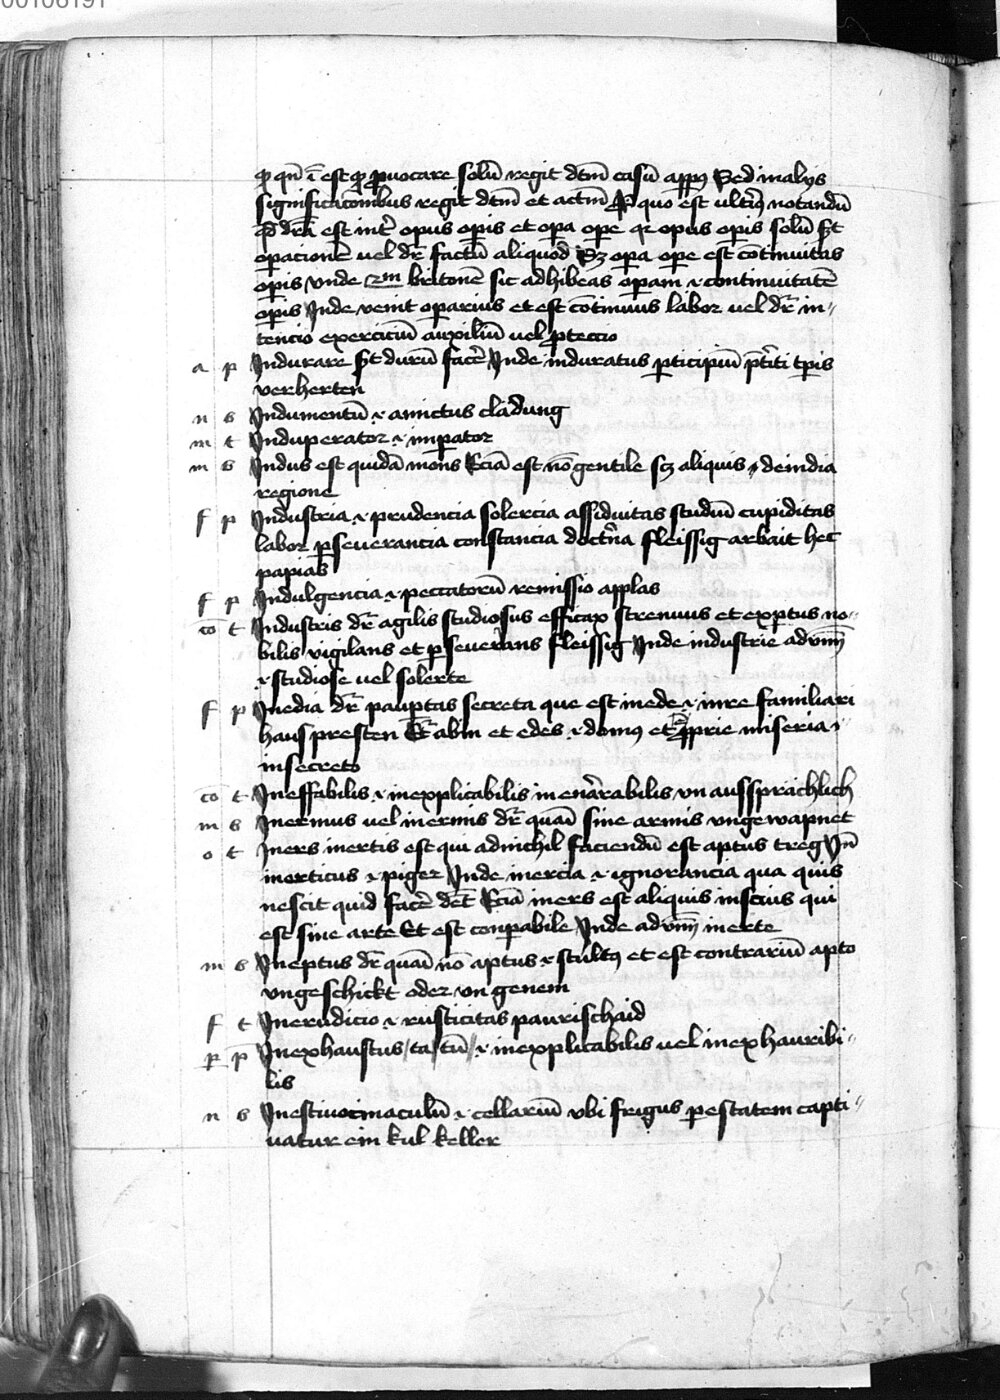 00106191
qn̄ ē est solū regit dtm̄ casū Sed in alijs
significacōnibus regit dtm̄ et actm̄ quo est ultīꝰ notandū
qd dr̄ia est int̄ opus opis et opa ope qr opus opis solū
opacionē uel dr̄ factū aliquod Sꝫ opa ope est cōtinuitas
opis vnde 2m britonē sic adhibeas opam ⁊ continuitatē
opis Inde uenit oparius et est cōtinuus labor uel dr̄ in〃
tencio exerciciū auxiliū uel ꝓteccio
a p Indurare durū facē Inde induratus ꝑticipiū p̄titi tꝑis
verherten
n s Indumentū ⁊ amictus cladung
m t Induperator ⁊ impator
m s Indus est quidā mons Eciā est nō gentile sꝫ aliquis de india
regione
f p Industria ⁊ prudencia solercia assiduitas studiū cupiditas
labor ꝑseuerancia constancia doct̄na fleissig arbait hec
papias
f p Indulgencia ⁊ peccatorū remissio applas
cō t Industris dr̄ agilis studiosus efficax strenuus et exꝑtus no〃
bilis vigilans et ꝑseuerans fleissig Inde industrie aduīm
⁊ studiose uel solerte
f p Inedia dr̄ pauꝑtas secreta que est in ede ⁊ in re familiari
haus presten Et dr̄ ab in et edes ⁊ domꝰ et ꝓprie miseria ⁊
in secreto
cō t Ineffabilis ⁊ inexplicabilis inenarrabilis vn aussprächlich
m s Inermus uel inermis dr̄ quasi sine armis vngewapnet
o t Iners inertis est qui ad nichil faciendū est aptus treg Vn̄
inerticus ⁊ piger Inde inercia ⁊ ignorancia qua quis
nescit quid facē det Eciā iners est aliquis inscius qui
est sine arte Et est conꝑabile Inde aduīm inerte
m s Ineptus dr̄ quasi nō aptus ⁊ stultꝰ et est contrariū apto
vngeschickt oder vn genem
f t Inerudicio ⁊ rusticitas paurischaid
p p Inexhaustus / ta / tū / ⁊ inexplicabilis uel inexhauribi〃
lis
n s Inestiuocinaculū ⁊ cellariū vbi frigus ꝑ estatem capti〃
uatur ein kul keller